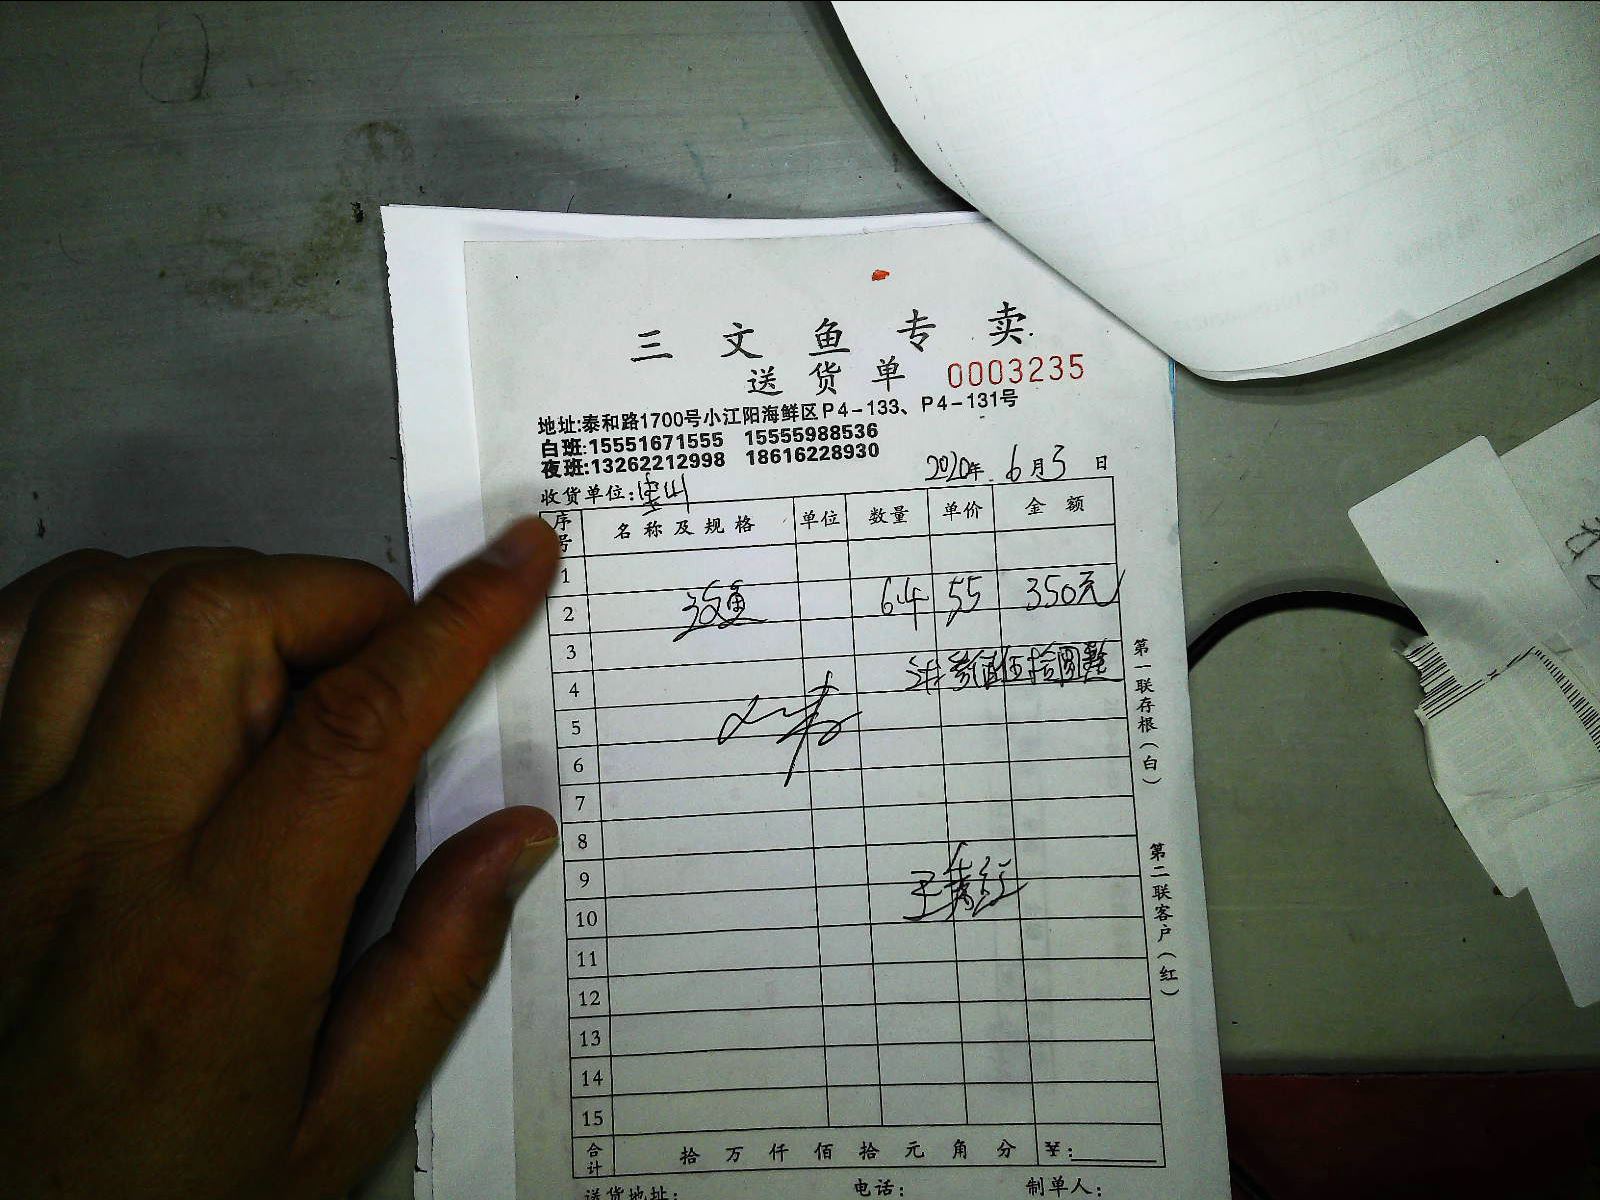 三文鱼专卖
送货单 0003235
地址:泰和路1700号小江阳海鲜区P4-133、P4-131号
白班:15551671555 15555988536
夜班:13262212998 18616228930
2020年 6月3日
收货单位:
序号 名称及规格 单位 数量 单价 金额
1
2 64 55 350元
3
叁佰伍拾圆整
4
5
6
7
8
9
10
11
12
13
14
15
合计 拾万仟佰拾元角分 ¥:
送货地址: 电话: 制单人:
第一联存根(白)
第二联客户(红)